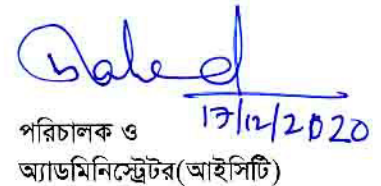 17/12/2020
পরিচালক ও
অ্যাডমিনিস্ট্রেটর(আইসিটি)